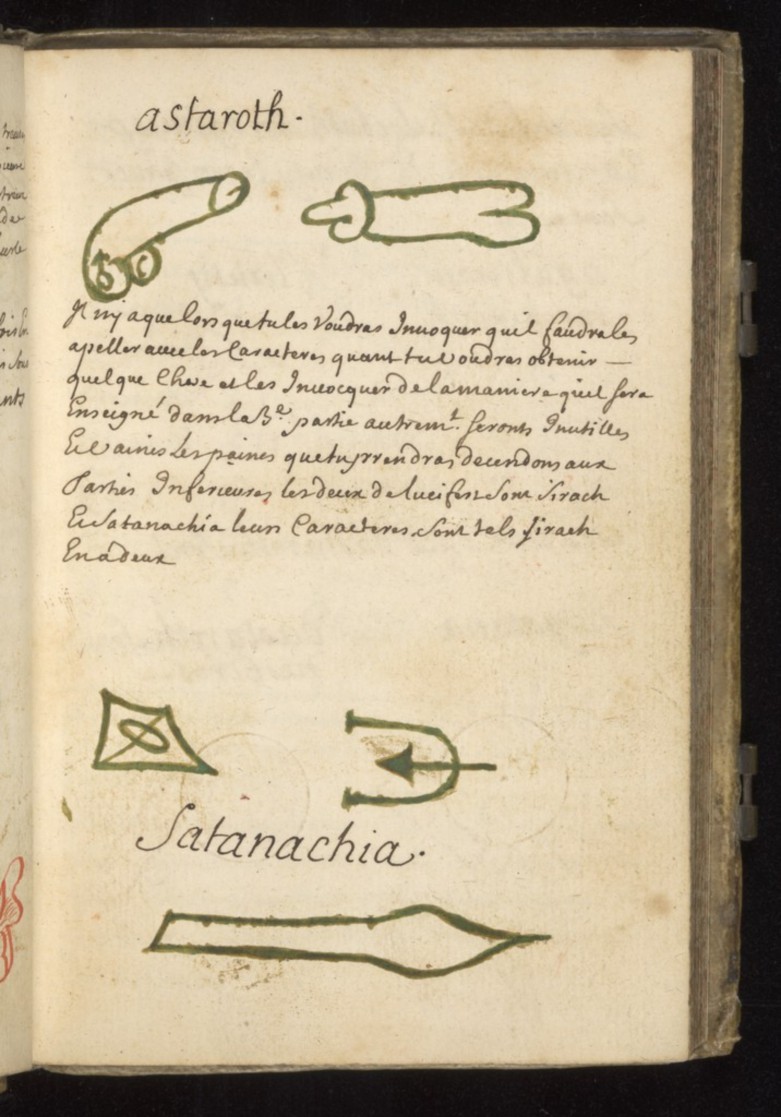 astaroth.
Il ny a que lors que tu les Voudras Inuoquer quil faudra les
apeller auec les Caracteres quant tu voudras obtenir —
quelque Chose et les Inuocquer de la maniere quil sera
Enseigné dans la 3e partie autremt. seronts Inutilles
Et Vaines Les paines que tu prendras decendons aux
Parties Inferieures les deux de lucifer sont Sirach
Et Satanachia leurs Caracteres sont tels Sirach
En a deux
Satanachia.